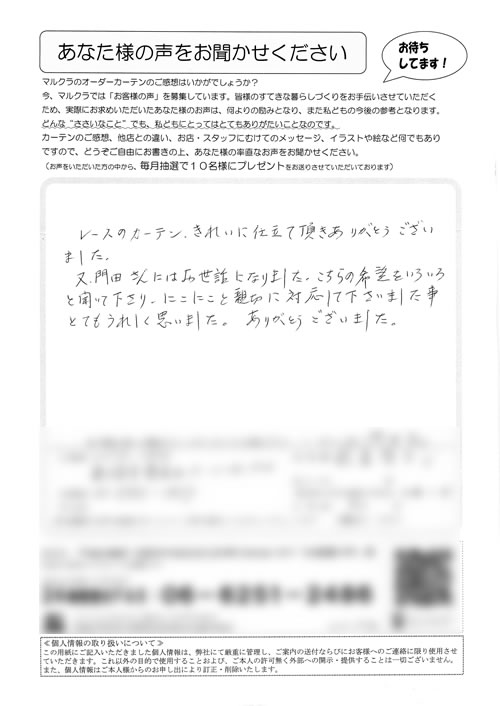 あなた様の声をお聞かせください
お待ち
してます！
マルクラのオーダーカーテンのご感想はいかがでしょうか？
今、マルクラでは「お客様の声」を募集しています。皆様のすてきな暮らしづくりをお手伝いさせていただく
ため、実際にお求めいただいたあなた様のお声は、何よりの励みとなり、また私どもの今後の参考となります。
どんな“ささいなこと”でも、私どもにとってはとてもありがたいことなのです。
カーテンのご感想、他店との違い、お店・スタッフにむけてのメッセージ、イラストや絵など何でもあり
ですので、どうぞご自由にお書きの上、あなた様の率直なお声をお聞かせください。
（お声をいただいた方の中から、毎月抽選で１０名様にプレゼントをお送りさせていただいております）
レースのカーテン、きれいに仕立て頂きありがとうござい
ました。
又、門田さんにはお世話になりました。こちらの希望をいろいろ
と聞いて下さり、にこにこと親切に対応して下さいました事
とてもうれしく思いました。 ありがとうございました。
≪個人情報の取り扱いについて≫
この用紙にご記入いただきました個人情報は、弊社にて厳重に管理し、ご案内の送付ならびにお客様へのご連絡に限り使用させ
ていただきます。これ以外の目的で使用することおよび、ご本人の許可無く外部への開示・提供することは一切ございません。
また、個人情報はご本人様からのお申し出により訂正・削除いたします。